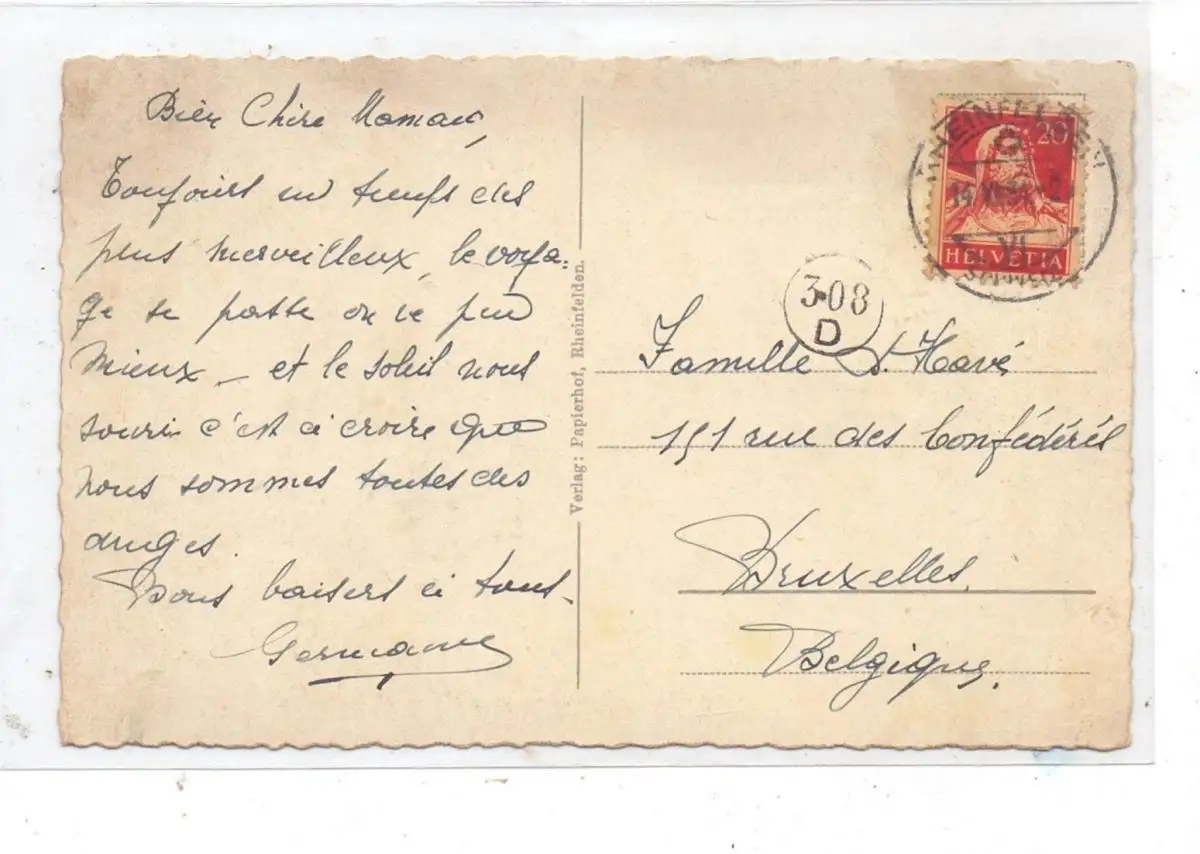 Bien Chère Maman,
Toujours un temps des
plus merveilleux, le voya-
ge se passe on ne peu
mieux - et le soleil nous
souri c'est à croire que
nous sommes toutes des
anges.
Bons baisers à tous.
Germaine
Verlag: Papierhof, Rheinfelden.
RHEINFELDEN
20
14 VI
VI
HELVETIA
3·08
D
Famille d. Havé
151 rue des Confédérés
Bruxelles.
Belgique.